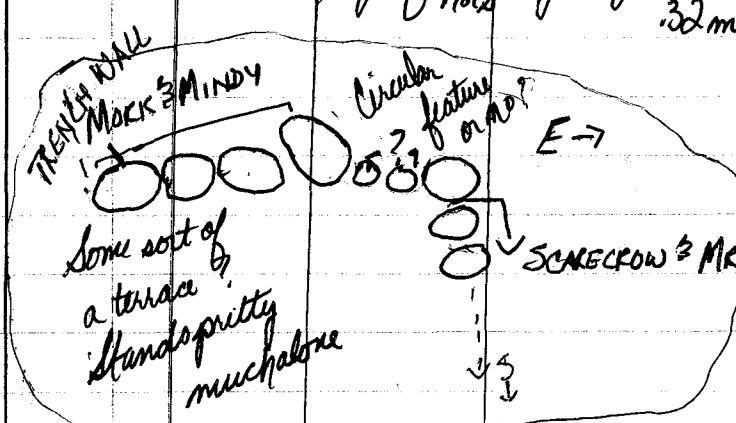 .32 m
TRENCH WALL
MORK & MINDY
Circular
feature
or no?
? ?
E →
SCARECROW & MR
Some sort of
a terrace?
Stands pritty
much alone
S